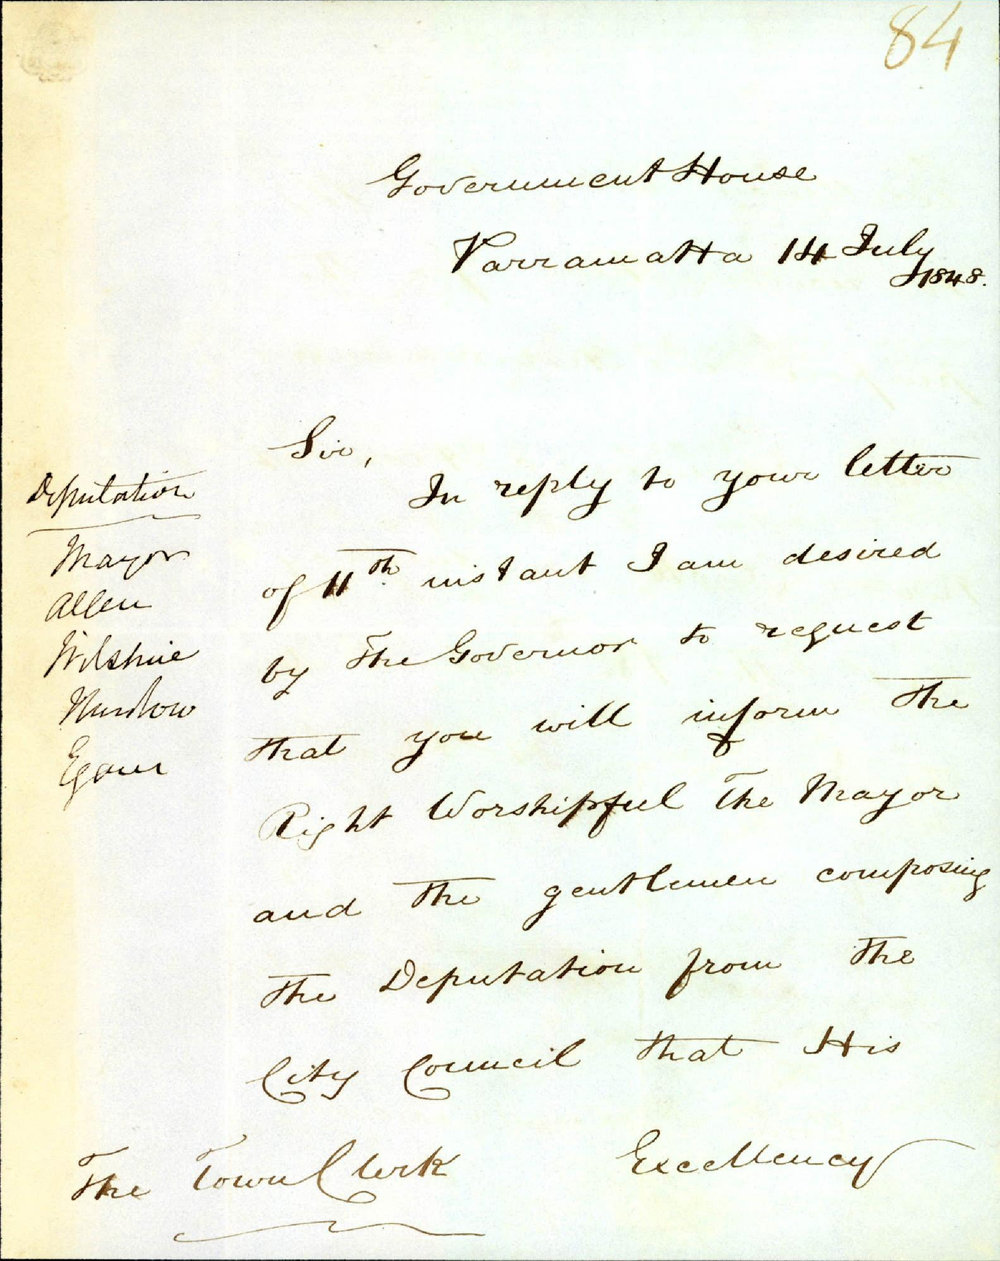 84
Government House
Parramatta 14 July
1848.
Sir,
In reply to your letter
of 11th instant I am desired
by The Governor to request
that you will inform The
Right Worshipful The Mayor
and the gentlemen composing
the Deputation from the
City Council that His
Excellency
The Town Clerk
Deputation
Mayor
Allen
Wilshire
Egan